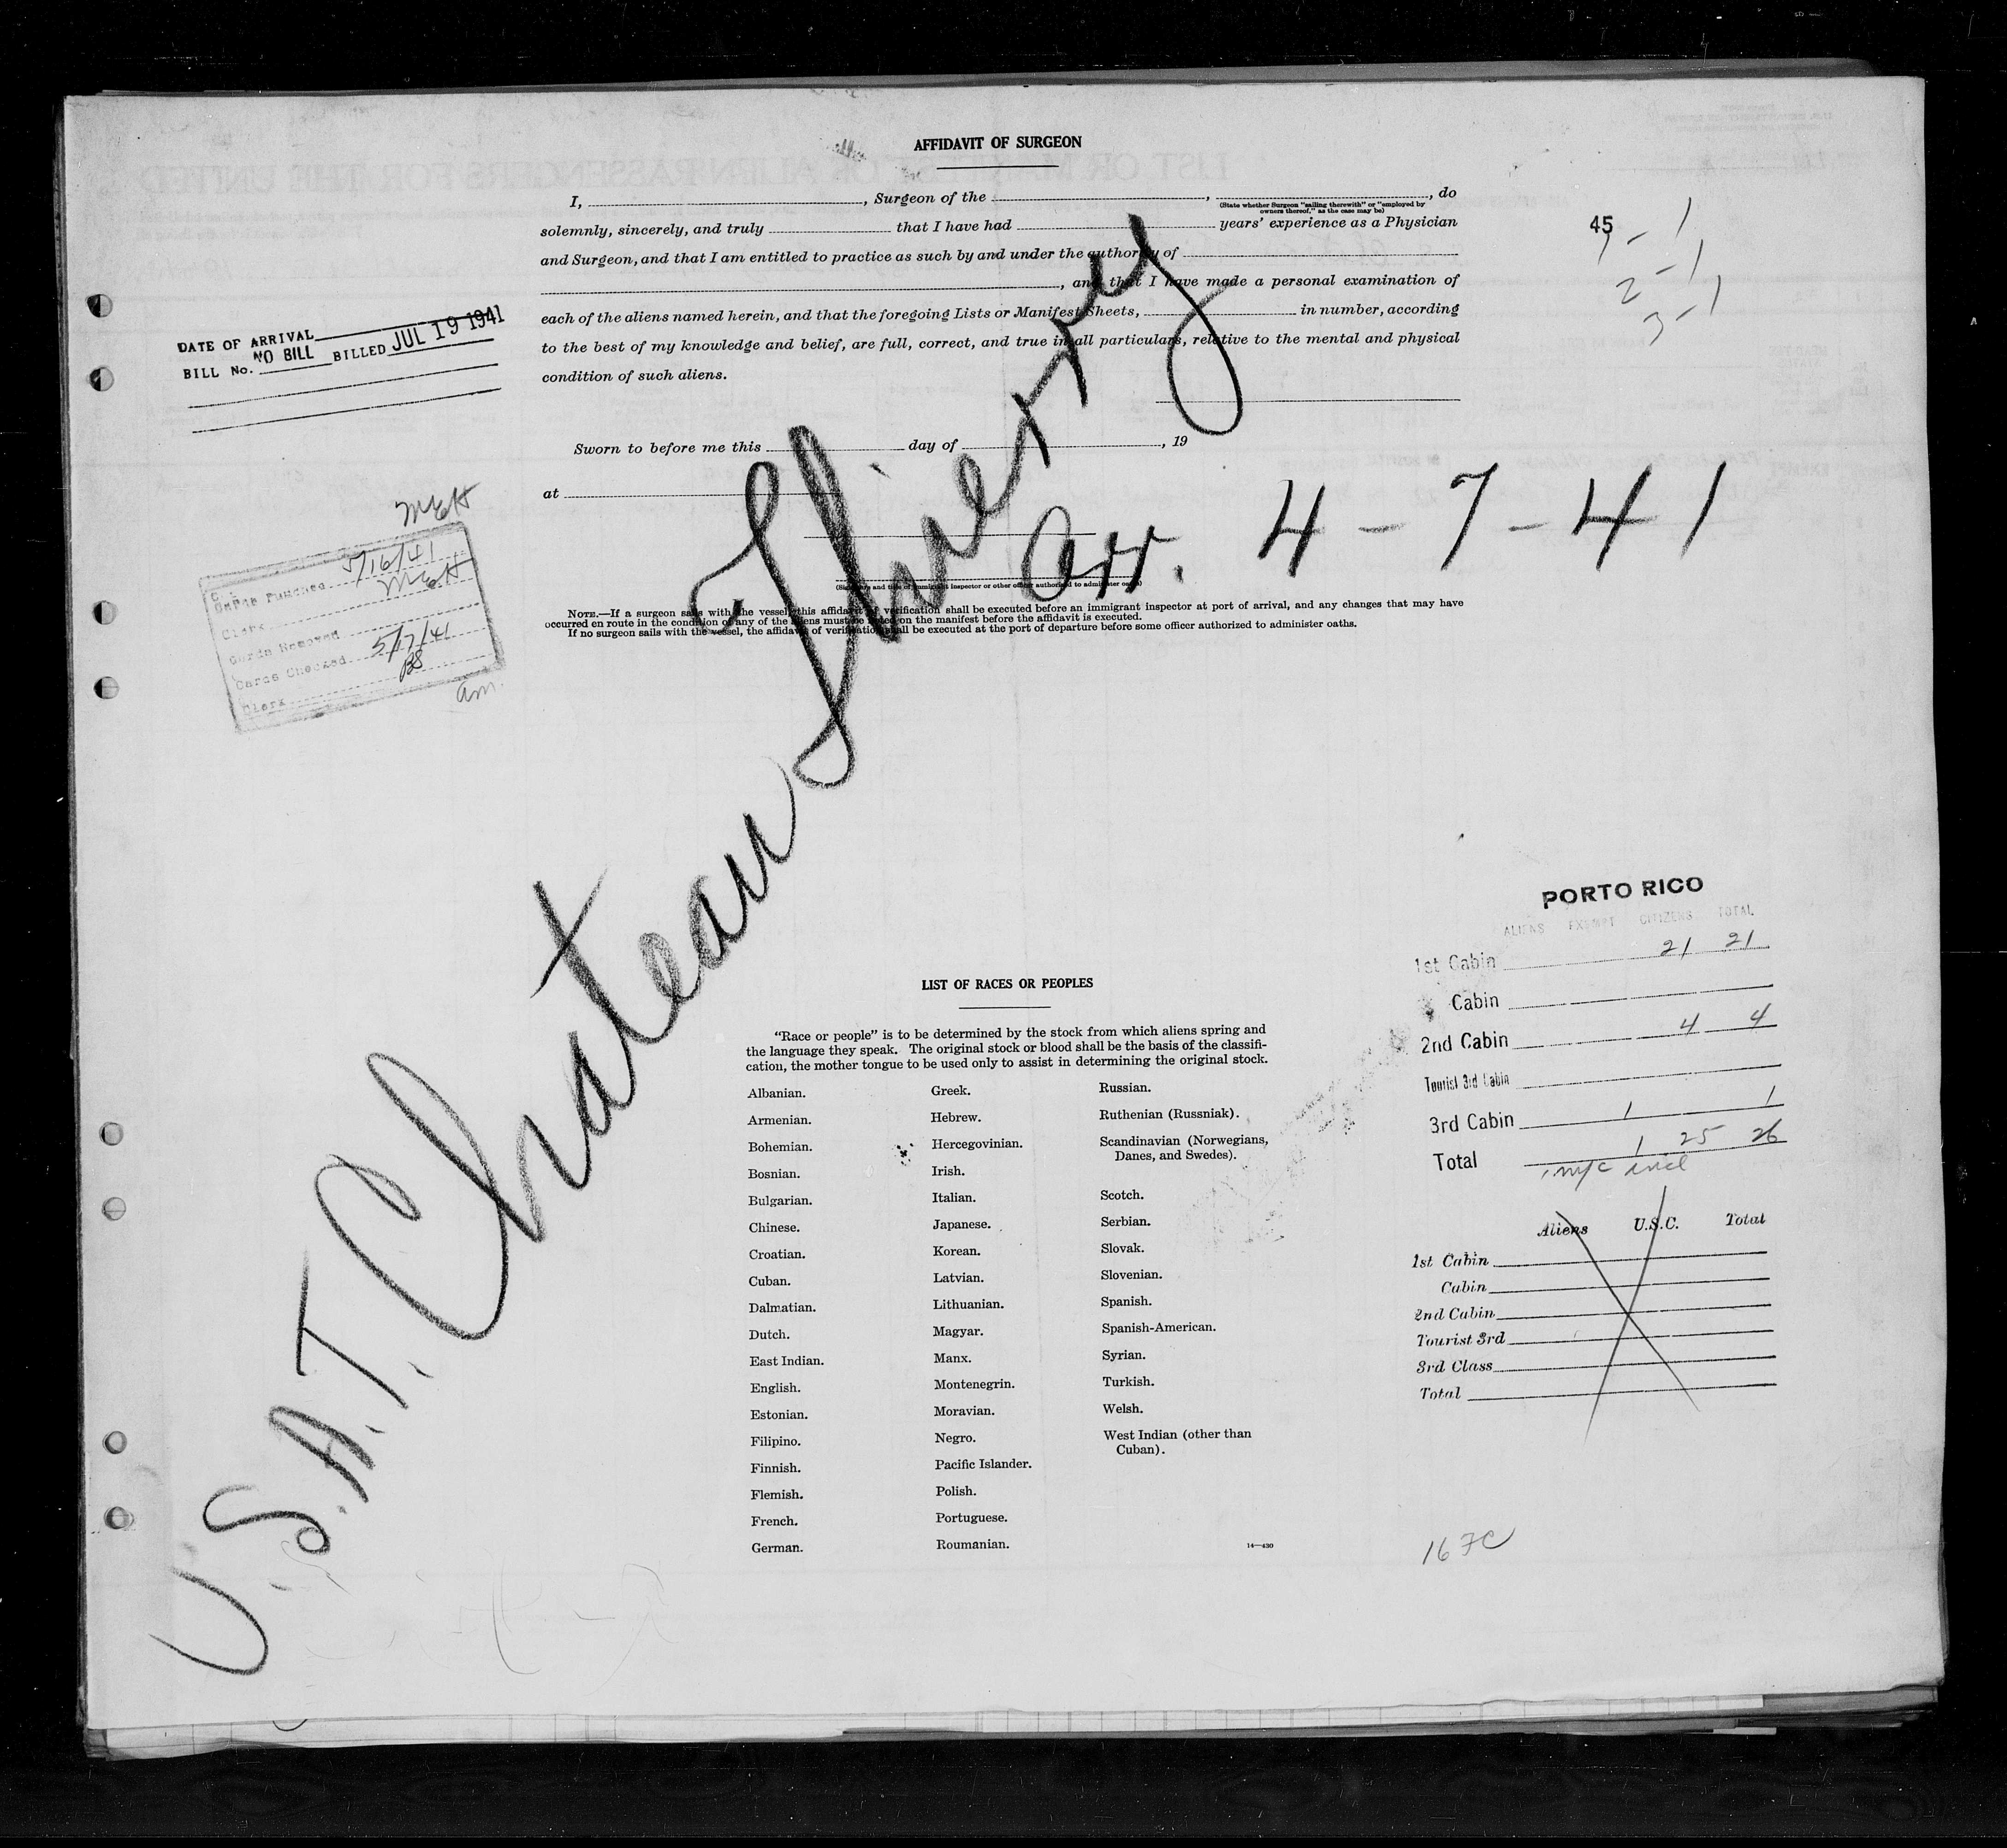 AFFIDAVIT OF SURGEON
I, , Surgeon of the , , do
(State whether Surgeon "sailing therewith" or "employed by
owners thereof," as the case may be)
solemnly, sincerely, and truly that I have had years' experience as a Physician
and Surgeon, and that I am entitled to practice as such by and under the authority of
, and that I have made a personal examination of
each of the aliens named herein, and that the foregoing Lists or Manifest Sheets, in number, according
to the best of my knowledge and belief, are full, correct, and true in all particulars, relative to the mental and physical
condition of such aliens.
Sworn to before me this day of , 19
at
(Signature and title of immigrant inspector or other officer authorized to administer oaths)
NOTE.—If a surgeon sails with the vessel, this affidavit of verification shall be executed before an immigrant inspector at port of arrival, and any changes that may have
occurred en route in the condition of any of the aliens must be noted on the manifest before the affidavit is executed.
If no surgeon sails with the vessel, the affidavit of verification shall be executed at the port of departure before some officer authorized to administer oaths.
45
1 - 1
2 - 1
3 - 1
DATE OF ARRIVAL
BILL No. NO BILL BILLED JUL 19 1941
MEH
Cards Punched 5/16/41
Clerk MEH
Cards Removed
Cards Checked 5/17/41
Clerk BS
am.
U.S.A.T. Chateau Thierry
Arr. 4-7-41
PORTO RICO
ALIENS EXEMPT CITIZENS TOTAL
1st Cabin 21 21
Cabin
2nd Cabin 4 4
Tourist 3rd Cabin
3rd Cabin 1 1
Total 1 25 26
Aliens U.S.C. Total
1st Cabin
Cabin
2nd Cabin
Tourist 3rd
3rd Class
Total
LIST OF RACES OR PEOPLES
"Race or people" is to be determined by the stock from which aliens spring and
the language they speak. The original stock or blood shall be the basis of the classifi-
cation, the mother tongue to be used only to assist in determining the original stock.
Albanian.
Armenian.
Bohemian.
Bosnian.
Bulgarian.
Chinese.
Croatian.
Cuban.
Dalmatian.
Dutch.
East Indian.
English.
Estonian.
Filipino.
Finnish.
Flemish.
French.
German.
Greek.
Hebrew.
Hercegovinian.
Irish.
Italian.
Japanese.
Korean.
Latvian.
Lithuanian.
Magyar.
Manx.
Montenegrin.
Moravian.
Negro.
Pacific Islander.
Polish.
Portuguese.
Roumanian.
Russian.
Ruthenian (Russniak).
Scandinavian (Norwegians,
Danes, and Swedes).
Scotch.
Serbian.
Slovak.
Slovenian.
Spanish.
Spanish-American.
Syrian.
Turkish.
Welsh.
West Indian (other than
Cuban).
14—430